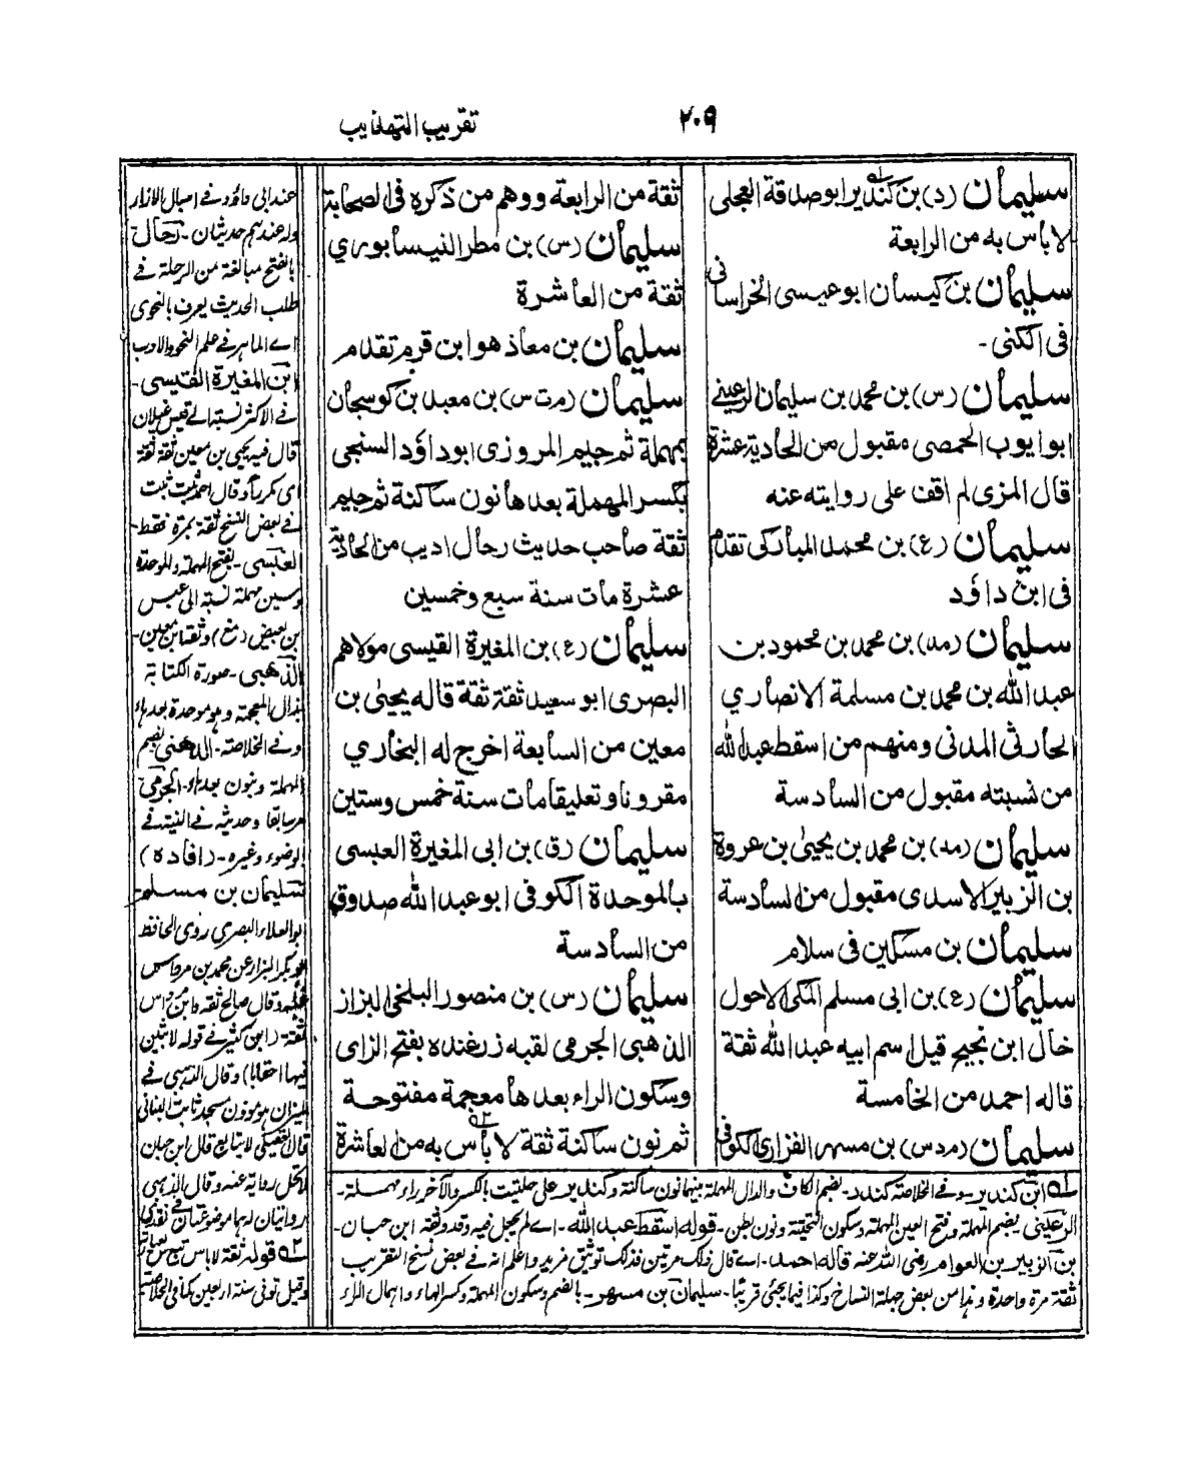 ٢٠٩
تقريب التهذيب
سليمان (د) بن كندير ابو صدقة العجلى
لا بأس به من الرابعة
سليمان بن كيسان ابو عيسى الخراسانى
فى الكنى -
سليمان (س) بن محمد بن سليمان الرعينے
ابو ايوب الحمصى مقبول من الحادية عشرة
قال المزى لم اقف على روايته عنه
سليمان (ع) بن محمد المباركى تقدم
فى ابن داؤد
سليمان (مد) بن محمد بن محمود بن
عبد الله بن محمد بن مسلمة الانصاري
الحارثى المدنى ومنهم من اسقط عبد الله
من نسبته مقبول من السادسة
سليمان (مد) بن محمد بن يحيىٰ بن عروة
بن الزبير الاسدى مقبول من السادسة
سليمان بن مسكين فى سلام
سليمان (ع) بن ابى مسلم المكى الاحول
خال ابن نجيح قيل اسم ابيه عبد الله ثقة
قاله احمد من الخامسة
سليمان (م د س) بن مسهر الفزارى الكوفى
ثقة من الرابعة ووهم من ذكره فى الصحابة
سليمان (س) بن مطر النيسابوري
ثقة من العاشرة
سليمان بن معاذ هو ابن قرم تقدم
سليمان (م ت س) بن معبد بن كوسجان
بمهملة ثم جيم المروزى ابو داؤد السنجى
بكسر المهملة بعدها نون ساكنة ثم جيم
ثقة صاحب حديث رحال اديب من الحادية
عشرة مات سنة سبع وخمسين
سليمان (ع) بن المغيرة القيسى مولاهم
البصرى ابو سعيد ثقة ثقة قاله يحيىٰ بن
معين من السابعة اخرج له البخاري
مقرونا وتعليقا مات سنة خمس وستين
سليمان (ق) بن ابى المغيرة العبسى
بالموحدة الكوفى ابو عبد الله صدوق
من السادسة
سليمان (س) بن منصور البلخى البزاز
الذهبى الجرمى لقبه زرغنده بفتح الزاى
وسكون الراء بعدها معجمة مفتوحة
ثم نون ساكنة ثقة لا بأس به من العاشرة
عند ابى داؤد فے اسبال الازار
وله عندهم حديثان - رحال
بالفتح مبالغة من الرحلة فے
طلب الحديث يعرف بالنحوى
اے الماهر فے علم النحو والادب
ابن المغيرة القيسى -
فے الاكثر نسبة الے قيس غيلان
قال فيه يحيى بن معين ثقة ثقة
اى مكررا وقال احمد ثبت ثبت
فے بعض النسخ ثقة بمرة فقط -
العبسى - بفتح المهملة والموحدة
وسين مهملة نسبة الى عبس
بن بغيض وثقه ابن معين -
الذهبى - صورة الكتابة
بذال المعجمة وهو موحدة بعد هاء
وفے الخلاصة - الدهنى بضم
المهملة وبنون بعد هاء - الجرمى
مر سابقا وحديثه فے النية فے
الوضوء وغيره - (افاده)
سليمان بن مسلم
ابو العلاء البصرى روى الحافظ
ابو بكر البزار عن محمد بن مرداس
عنه وقال صالح ثقة
ثقة (ابن كثير فے قوله لابثين
فيها احقابا) وقال الذهبى فے
الميزان هو مؤذن مسجد ثابت البنانى
قال العقيلى لا يتابع قال ابن حبان
لا تحل رواية عنه وقال الذهبى
روايتان له
ه٢ قوله ثقة لا باس
وقيل توفى سنة اربعين كما فى الخلاصة
ه١ ابن كندير - وفے الخلاصة كندد - بضم الكاف والدال المهملة بينهما نون ساكنة وكندير على حلتيت بالكسر والآخر راء مهملة -
الرعينى بضم المهملة وفتح العين المهملة وسكون التحتية ونون بطن - قوله اسقط عبد الله - اے لم يجعل فيه وقد وثقه ابن حبان -
بن الزبير بن العوام رضى الله عنه قاله احمد - اے قال ذلك مرتين فذلك توثيق مزيد واعلم انه فے بعض نسخ التقريب
ثقة مرة واحدة وهذا من بعض جهلة النساخ وكذا فيما يجئى قريبًا - سليمان بن مسهر - بالضم وسكون المهملة وكسر الهاء واهمال الراء